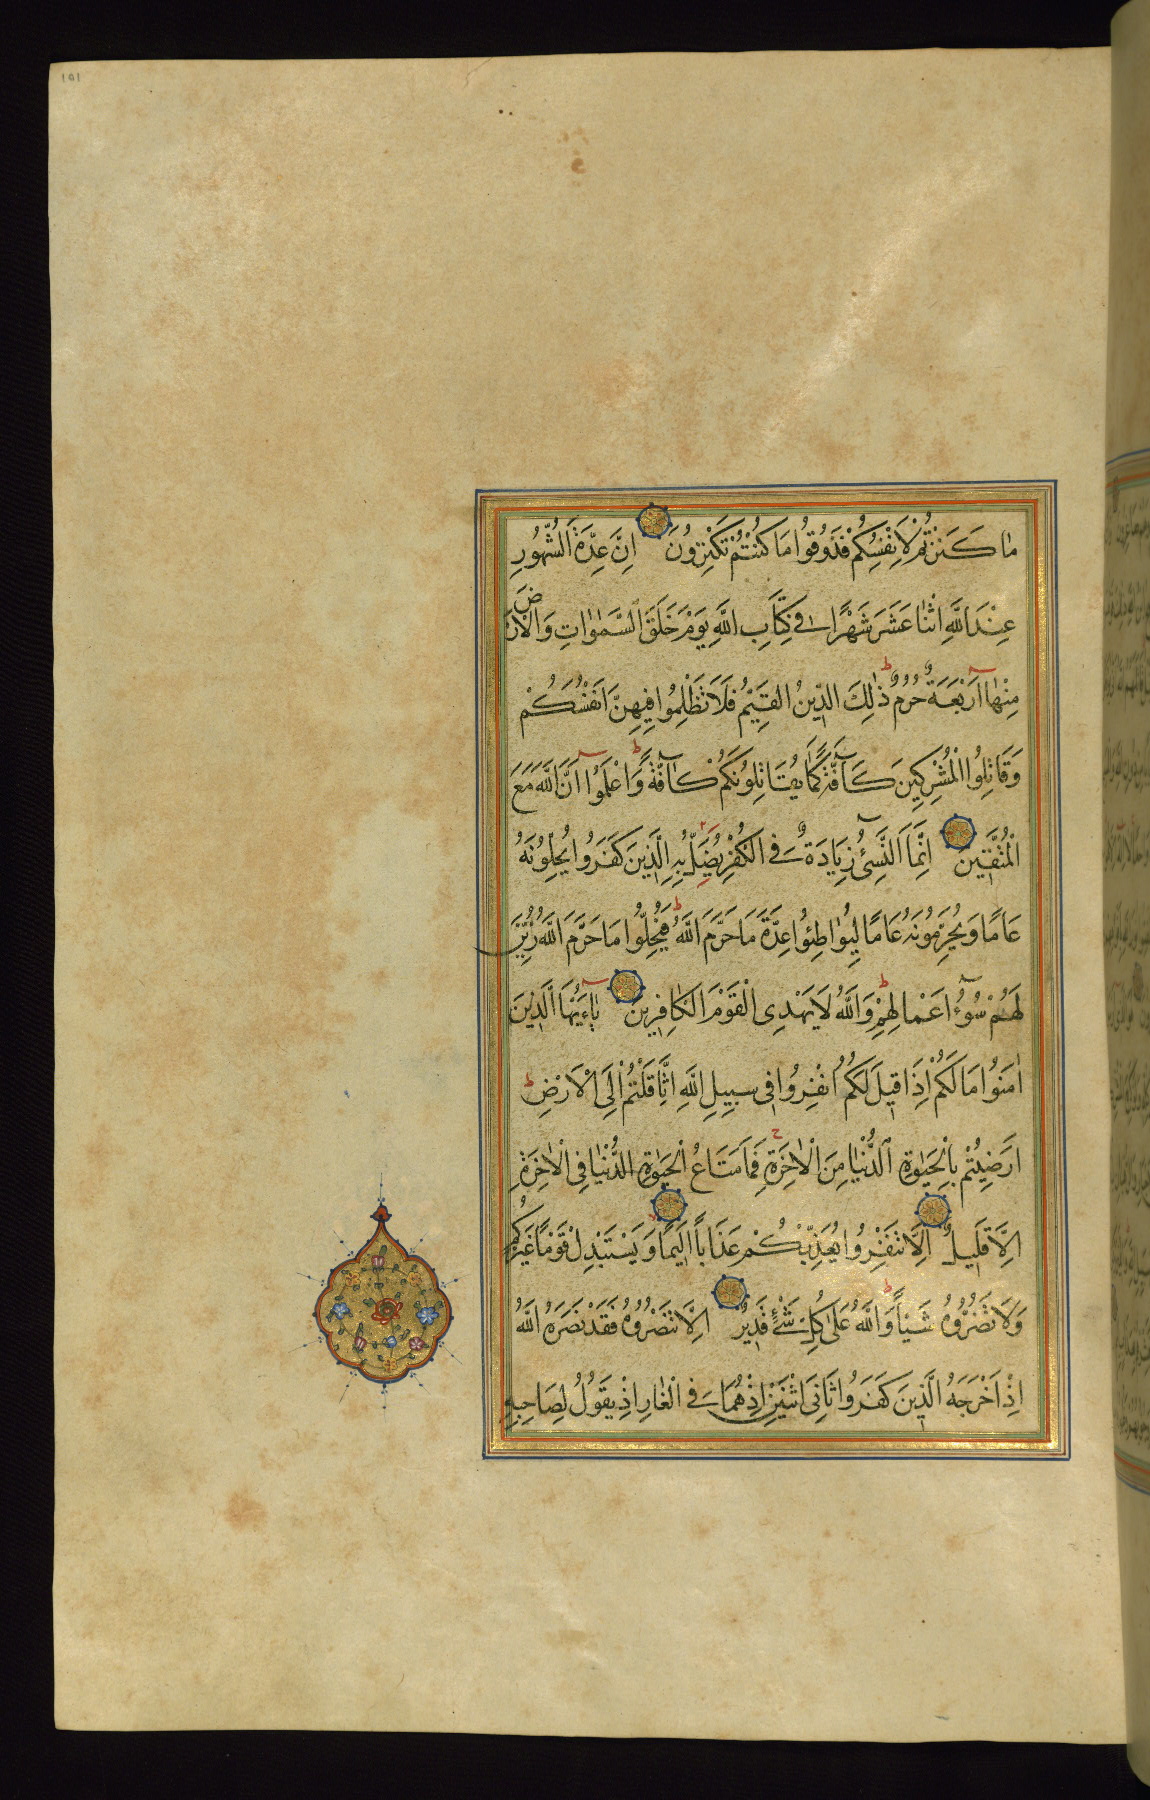 ١٥١
مٰا كَنَزْتُمْ لِاَنْفُسِكُمْ فَذُوقُوا مَا كُنْتُمْ تَكْنِزُونَ اِنَّ عِدَّةَ الشُّهُورِ
عِنْدَ اللّٰهِ اثْنٰا عَشَرَ شَهْرًا فِي كِتَابِ اللّٰهِ يَوْمَ خَلَقَ السَّمٰوٰاتِ وَالْاَرْضَ
مِنْهٰٓا اَرْبَعَةٌ حُرُمٌ ط ذٰلِكَ الدِّينُ الْقَيِّمُ فَلَا تَظْلِمُوا فِيهِنَّ اَنْفُسَكُمْ
وَقَاتِلُوا الْمُشْرِكِينَ كَآفَّةً كَمٰا يُقَاتِلُونَكُمْ كٰآفَّةً ط وَاعْلَمُوٓا اَنَّ اللّٰهَ مَعَ
الْمُتَّقِينَ اِنَّمَا النَّسِٓيءُ زِيَادَةٌ فِي الْكُفْرِ يُضَلُّ بِهِ الَّذِينَ كَفَرُوا يُحِلُّونَهُ
عَامًا وَيُحَرِّمُونَهُ عَامًا لِيُوٰاطِئُوا عِدَّةَ مَا حَرَّمَ اللّٰهُ فَيُحِلُّوا مَا حَرَّمَ اللّٰهُ ط زُيِّنَ
لَهُمْ سُٓوءُ اَعْمٰالِهِمْ ط وَاللّٰهُ لَا يَهْدِى الْقَوْمَ الْكٰافِرِينَ يٰٓاءَيُّهَا الَّذِينَ
اٰمَنُوا مَا لَكُمْ اِذَا قِيلَ لَكُمُ انْفِرُوا فِى سَبِيلِ اللّٰهِ اثَّاقَلْتُمْ اِلَى الْاَرْضِ ط
اَرَضِيتُمْ بِالْحَيٰوةِ الدُّنْيٰا مِنَ الْاٰخِرَةِ ج فَمَا مَتَاعُ الْحَيٰوةِ الدُّنْيٰا فِى الْاٰخِرَةِ
اِلَّا قَلِيلٌ اِلَّا تَنْفِرُوا يُعَذِّبْكُمْ عَذَابًا اَلِيمًا وَيَسْتَبْدِلْ قَوْمًا غَيْرَكُمْ
وَلَا تَضُرُّوهُ شَيْـًٔا ط وَاللّٰهُ عَلٰى كُلِّ شَيْءٍ قَدِيرٌ اِلَّا تَنْصُرُوهُ فَقَدْ نَصَرَهُ اللّٰهُ
اِذْ اَخْرَجَهُ الَّذِينَ كَفَرُوا ثَانِيَ اثْنَيْنِ اِذْ هُمَا فِي الْغٰارِ اِذْ يَقُولُ لِصَاحِبِهِ